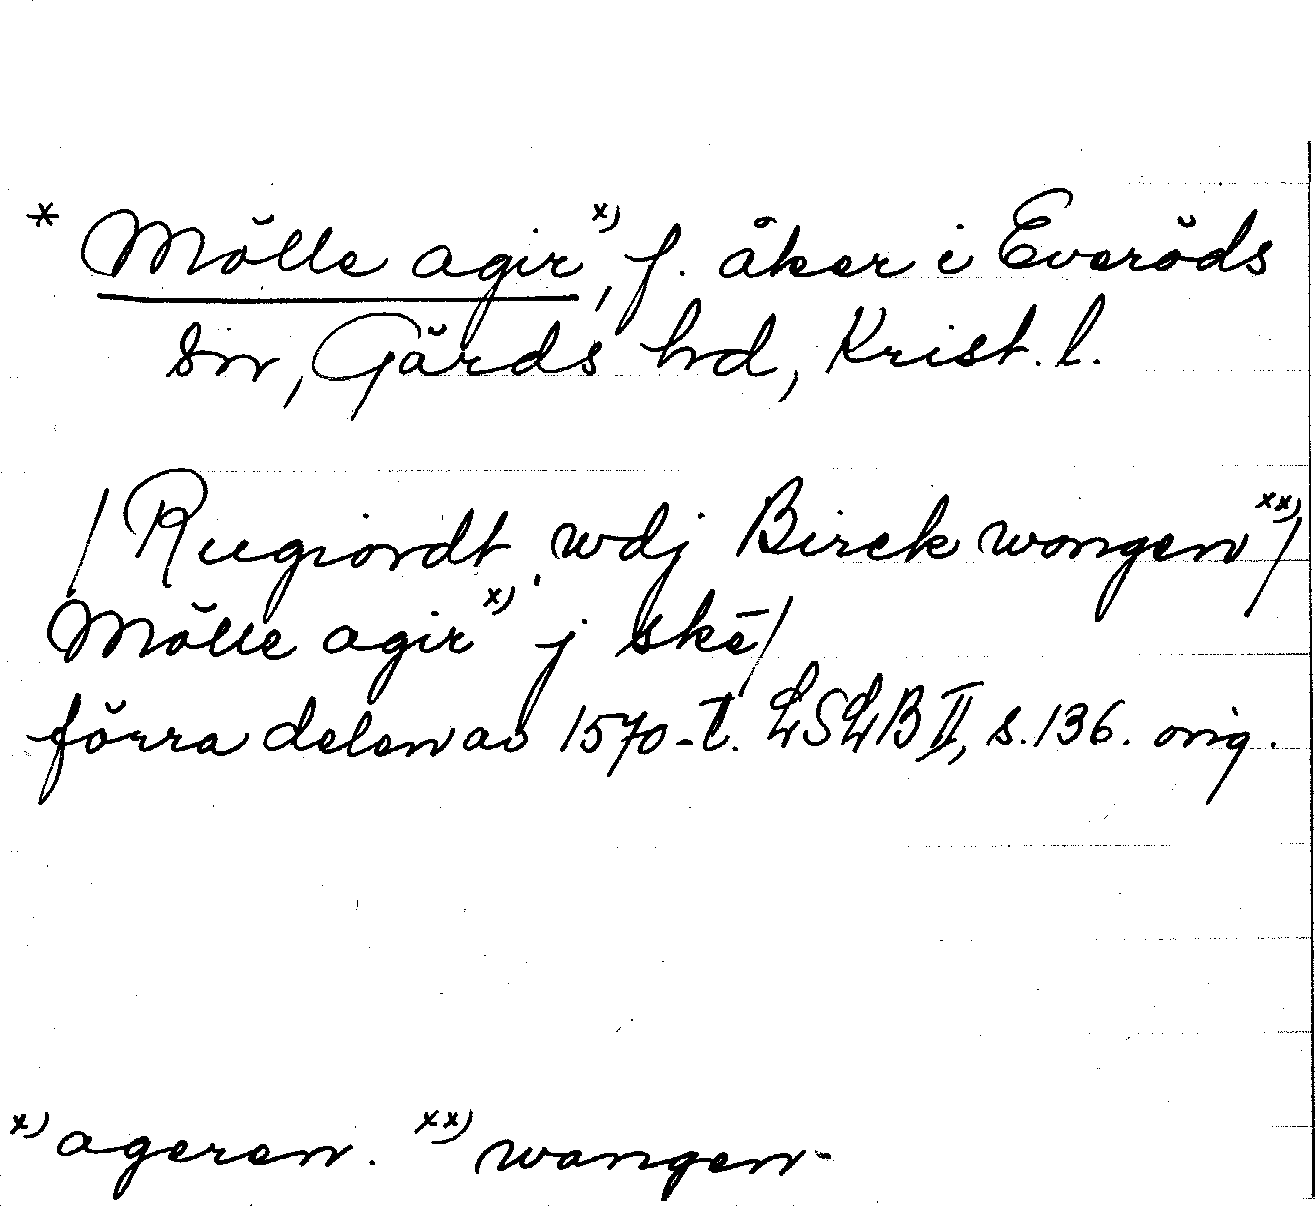 * Mölle agir x), f. åker i Everöds
sn, Gärds hd, Krist. l.
/ Rugiordt wdj Birck wongen xx) /
Mölle agir x) j skē /
förra delen av 1570-t. LSLB II, s. 136. orig.
x) ageren. xx) wangen-